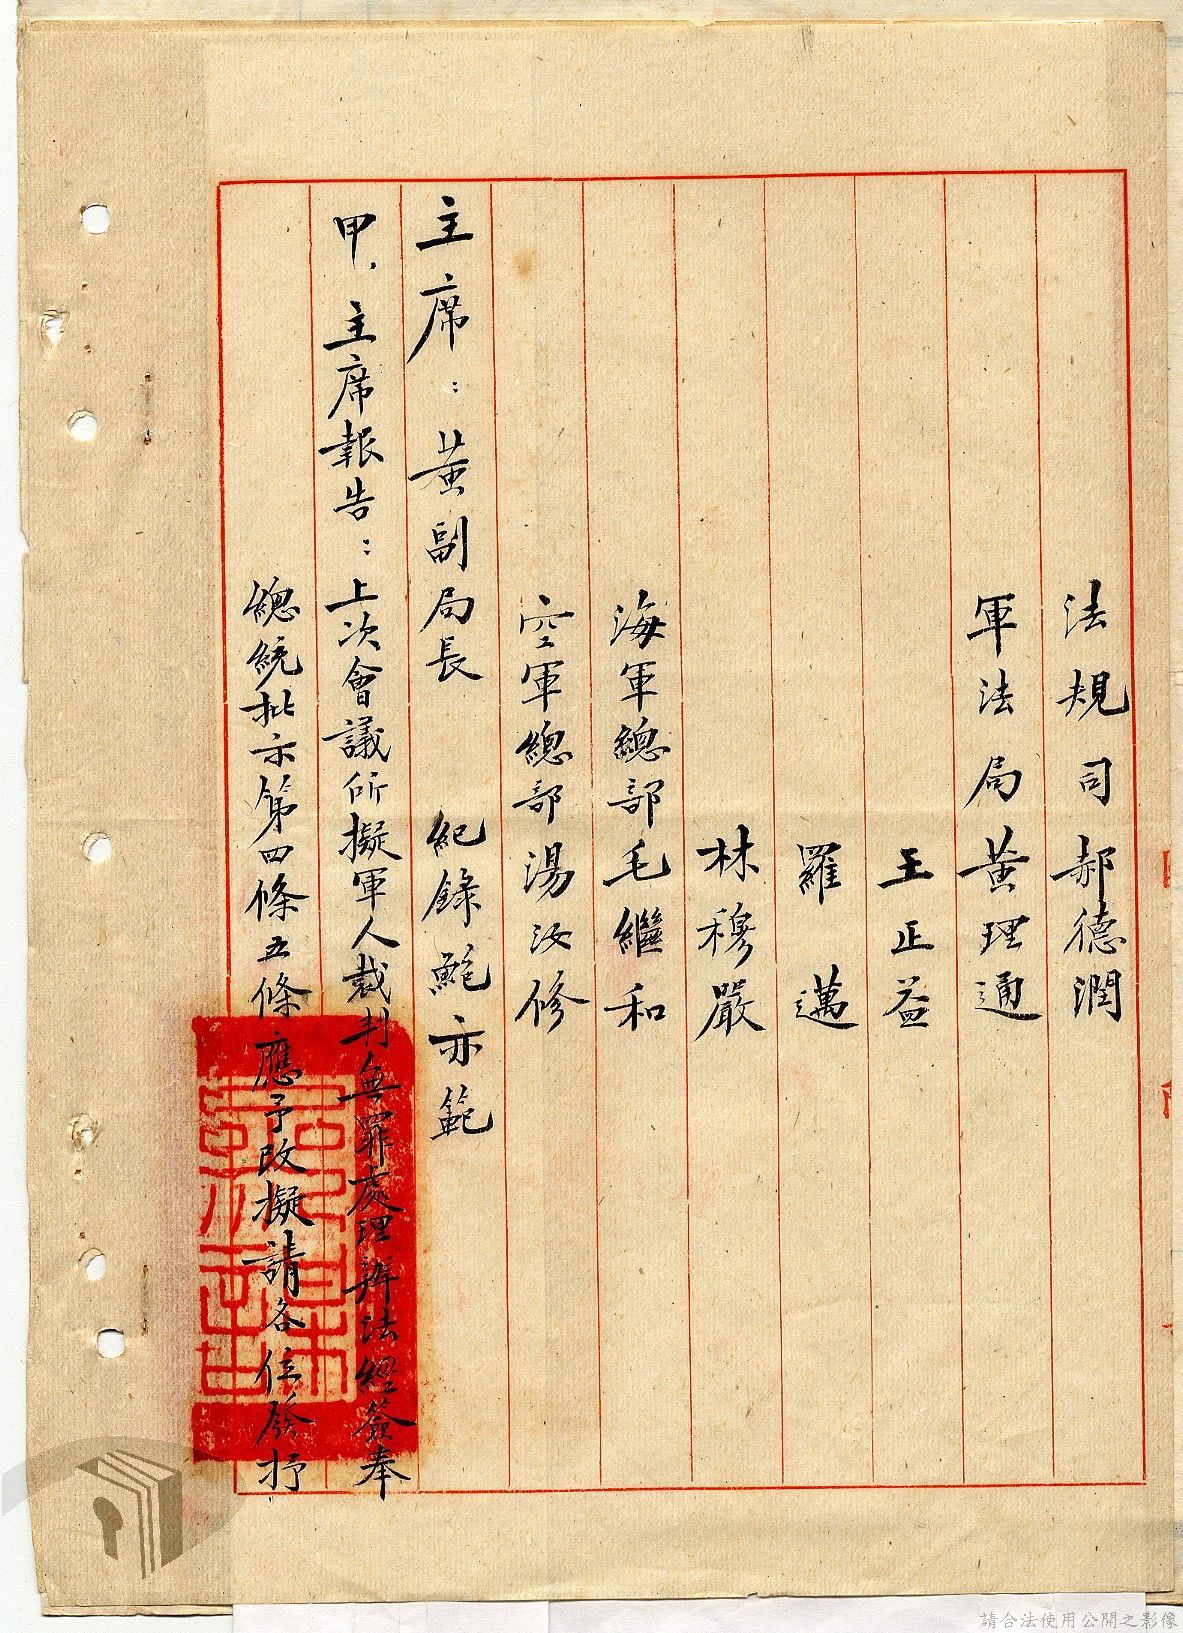 法規司郝德潤
軍法局黃理通
王正益
羅邁
林穆嚴
海軍總部毛繼和
空軍總部湯汝修
主席：黃副局長　紀錄鮑亦範
甲、主席報告：上次會議所擬軍人裁判無罪處理辦法經簽奉
總統批示第四條五條應予改擬請各位發抒
請合法使用公開之影像